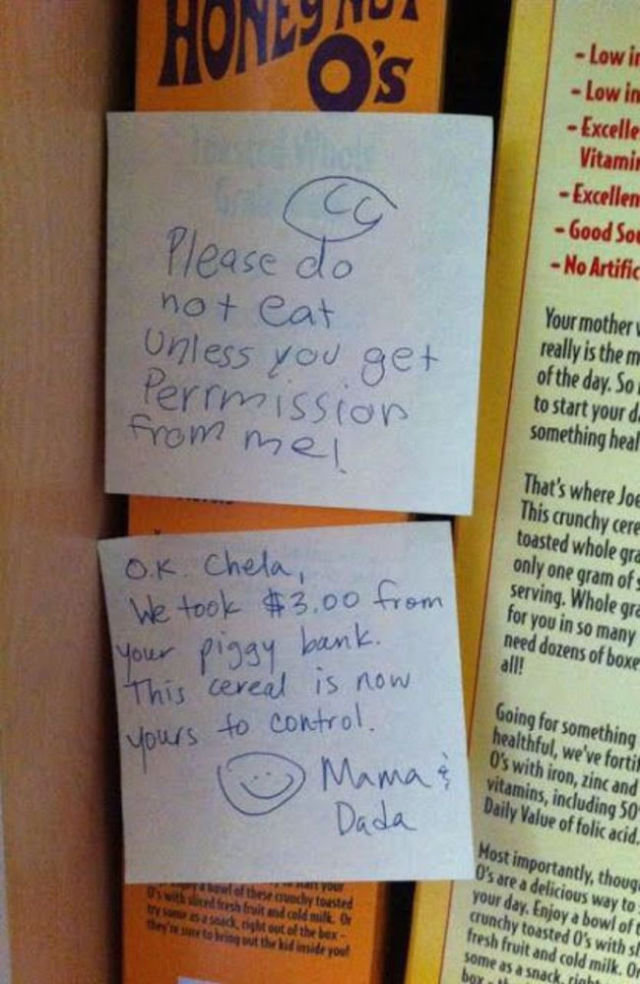 HONEY NUT
O's
Toasted Whole
CC
Please do
not eat
Unless you get
Perrmission
from me!
O.K. Chela,
We took $3.00 from
your piggy bank.
This cereal is now
yours to control.
Mama &
Dada
a bowl of these crunchy toasted
O's with sliced fresh fruit and cold milk. Or
try some as a snack, right out of the box –
they're sure to bring out the kid inside you!
- Low
- Low
-
- 
- Good
- No
Your mother
really is the
of the day. So
to start your
something
That's where Joe
This crunchy
toasted whole
only one gram of
serving. Whole
for you in so many
need dozens of
all!
Going for something
healthful, we've
O's with iron, zinc and
vitamins, including 50
Daily Value of folic acid.
Most importantly,
O's are a delicious way to
your day. Enjoy a bowl of
crunchy toasted O's with
fresh fruit and cold milk. Or
some as a snack,
box –